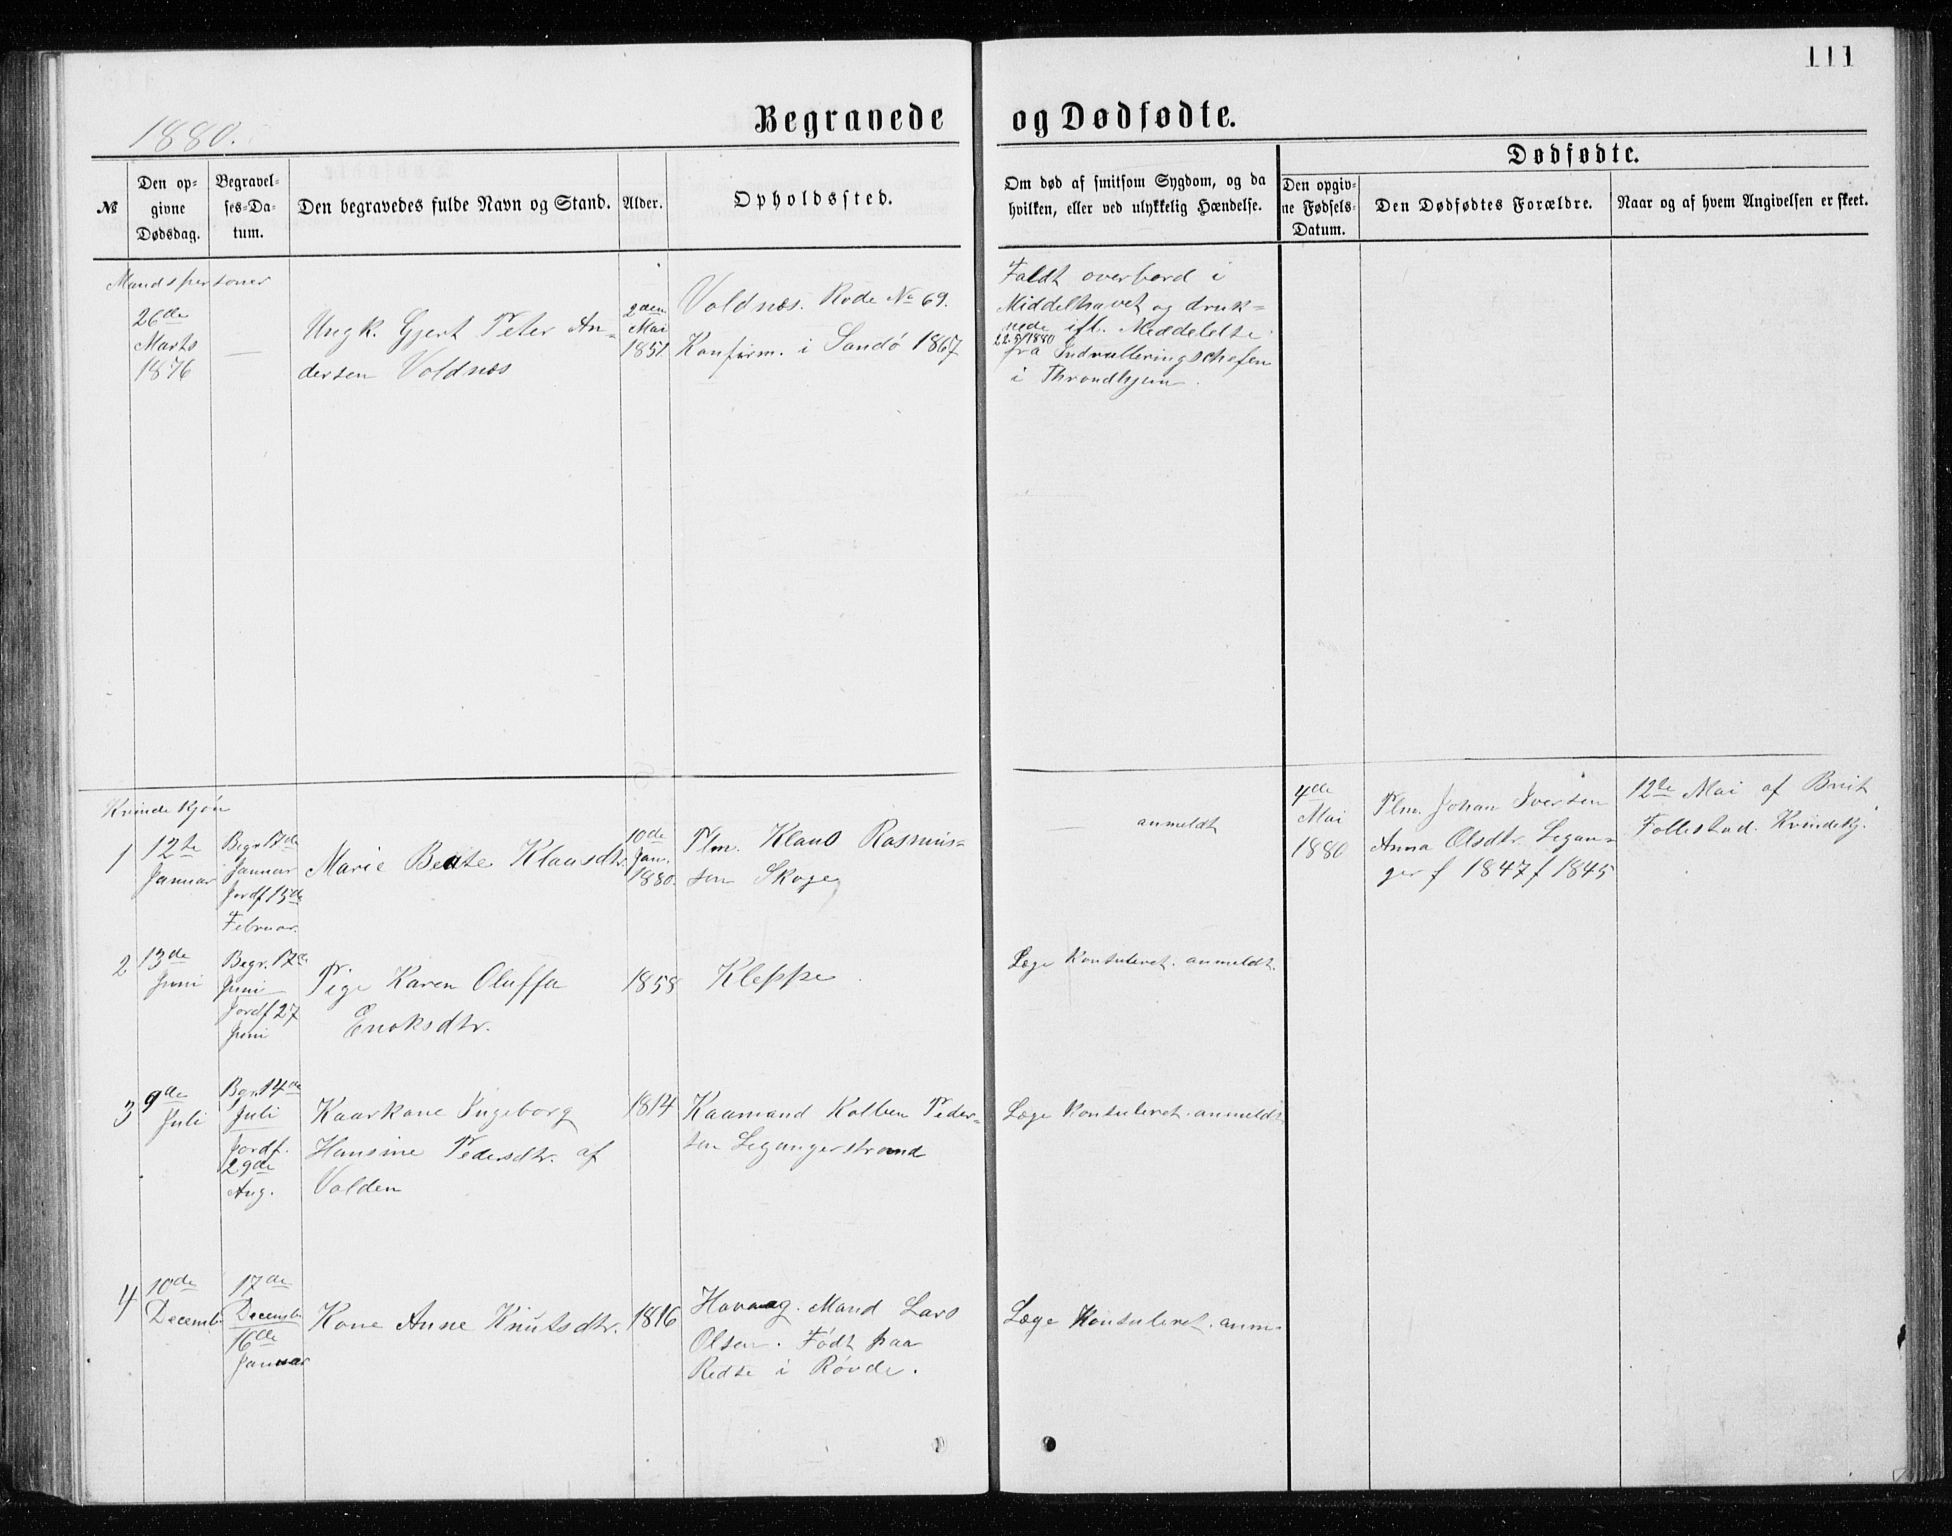 111
1880.
Begravede og Dødfødte.
№
Den op-
givne
Dødsdag.
Begravel-
ses-Da-
tum.
Den begravedes fulde Navn og Stand.
Alder.
Opholdssted.
Om død af smitsom Sygdom, og da
hvilken, eller ved ulykkelig Hændelse.
Dødfødte.
Den opgiv-
ne Fødsels-
Datum.
Den Dødfødtes Forældre.
Naar og af hvem Angivelsen er skeet.
Mandspersoner
26de
Marts
1876
—
Ungk. Gjert Peter An-
dersen Voldnæs
2den
Mai
1851
Voldnæs. Rode No 69.
Konfirm. i Sandø 1867
Faldt overbord i
Middelhavet og druk-
nede ifl. Meddelelse
22.5/1880
fra Indrulleringschefen
i Throndhjem.
Kvindekjøn
1
12te
Januar
Begr. 17de
Januar
Jordf 15de
Februar.
Marie Beate Klausdtr.
10de
Jan.
1880.
Plm. Klaus Rasmus-
sen Skoge
— anmeldt
4de
Mai
1880
Plm. Johan Iversen
Anna Olsdtr. Legan-
ger f 1847 f 1845
12te Mai af Brit
Follestad. Kvindekj.
2
13de
Juni
Begr. 17de
Juni
Jordf 27
Juni
Pige Karen Oluffa
Enoksdtr.
1858
Kleppe.
Læge Konsuleret. anmeldt.
3
9de
Juli
Begr. 14de
Juli
Jordf.
29de
Aug.
Kaarkone Ingeborg
Hansine Pedersdtr. af
Volden
1814
Kaamand Kolben Peder-
sen Legangerstrand
Læge Konsuleret. anmeldt
4
10de
Decemb.
17de
Decemb.
16de
Januar
Kone Anne Knutsdtr.
1816
Havaag. Mand Lars
Olsen. Født paa
Redse i Røvde.
Læge Konsuleret. anm-